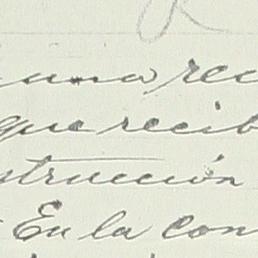 una rec
que recib
strucción
En la con